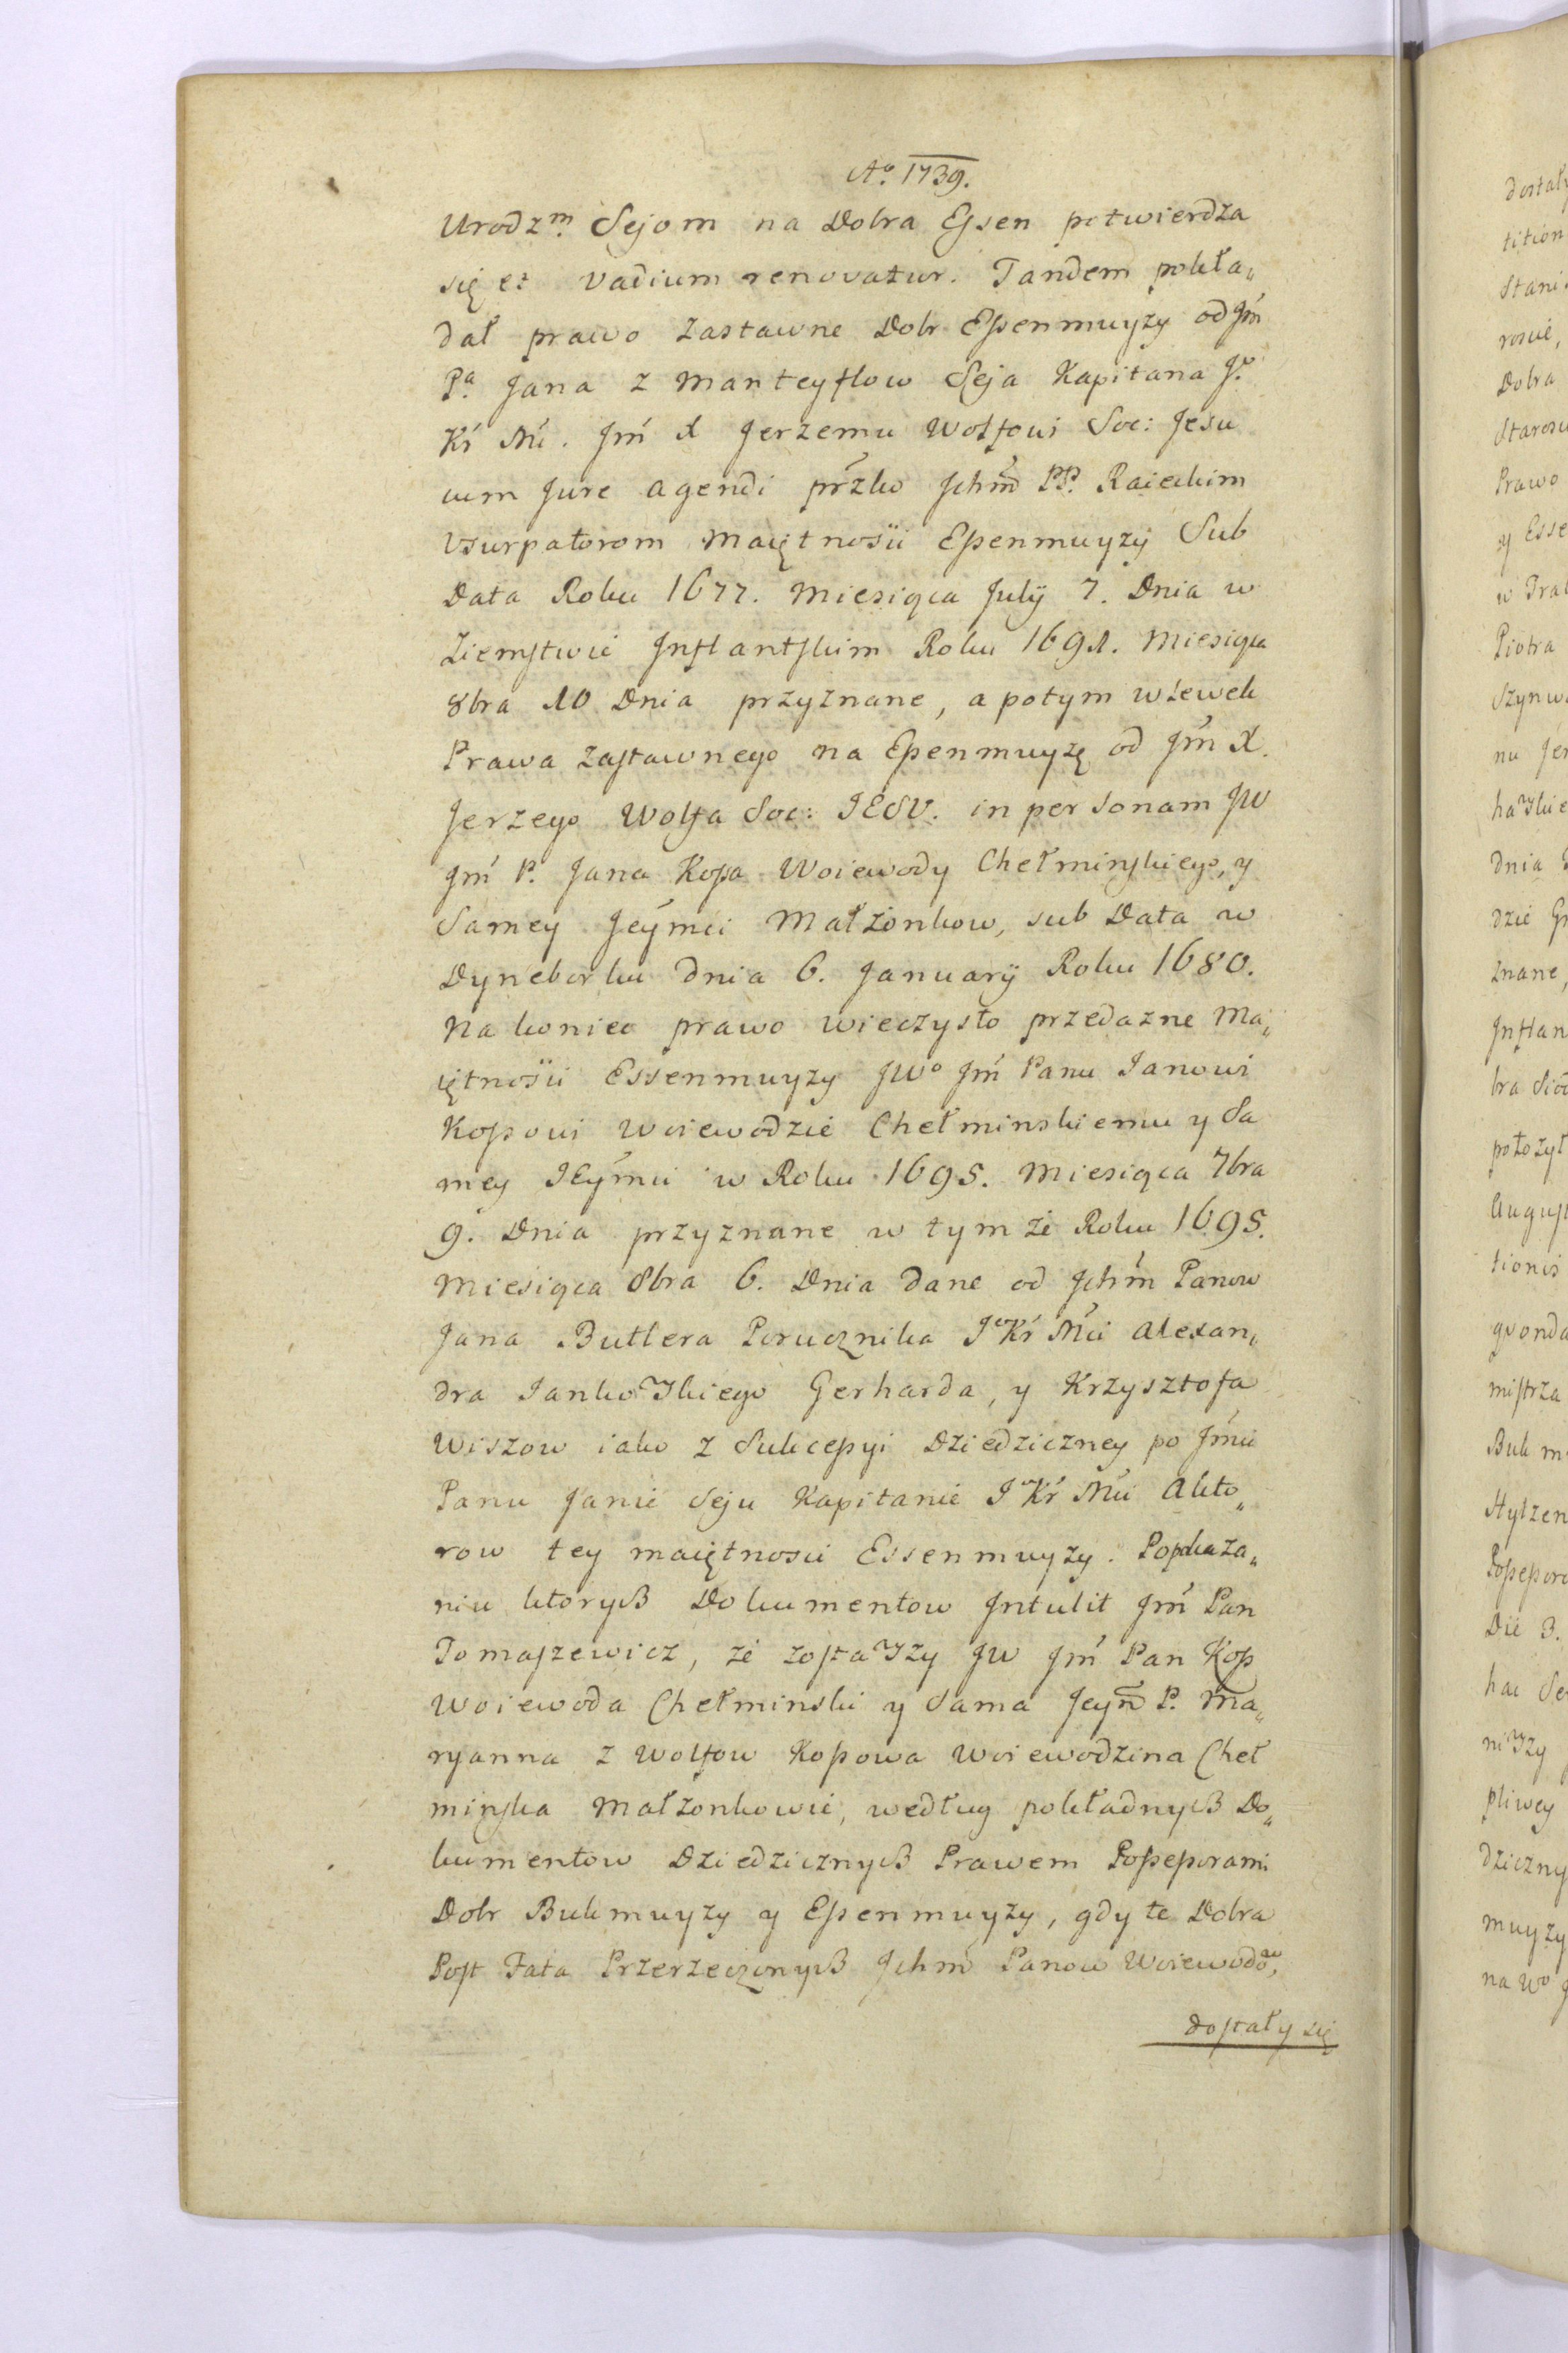 Aº 1739.
Urodzm. Sejom na Dobra Essen potwierdza
się et vadium renovatur. Tandem pokła„
dał prawo zastawne Dobr Essenmuyzy od Jm̃
Pa. Jana z Manteyflow Seja Kapitana Jo.
Kr Mci. Jm̃ X Jerzemu Wolfowi Soc: Jesu
cum Jure agendi przko Ichm̃ PP. Raieckim
Usurpatorom Maiętnosci Essenmuyzy Sub
Data Roku 1677. Miesiąca Julij 7. Dnia w
Ziemstwie Inflantskim Roku 1691. Miesiąca
8bra 10 Dnia przyznane, a potym wlewek
Prawa zastawnego na Essenmuyzę od Jm̃ X.
Jerzego Wolfa Soc: IESV. in personam JW
Jm̃ P. Jana Kossa Woiewody Chełminskiego, y
Samey Jeymci Małżonkow, sub Data w
Dyneborku dnia 6. Januarij Roku 1680.
Na koniec prawo wieczysto przedazne Ma„
iętnosci Essenmuyzy JWo Jm̃ Panu Janowi
Kossowi Woiewodzie Chełminskiemu y Sa
mey JEymci w Roku 1695. Miesiąca 7bra
9. Dnia przyznane w tymże Roku 1695.
Miesiąca 8bra 6. Dnia dane od Ichm̃ Panow
Jana Butlera Porucznika Jo Kr Mci Alexan„
dra Jankowskiego Gerharda, y Krzysztofa
Wiszow iako z Sukcessyi Dziedziczney po Jmci
Panu Janie Seju Kapitanie Jo Kr Mci Akto„
row tey maiętnosci Essenmuyzy. Popokaza„
niu ktorych Dokumentow Intulit Jm̃ Pan
Tomaszewicz, że zostawszy JW Jm̃ Pan Koss
Woiewoda Chełminski y Sama Jeym̃ P. Ma„
ryanna z Wolfow Kossowa Woiewodzina Cheł
minska Małzonkowie, według pokładnych Do„
kumentow Dziedzicznych Prawem Possessorami
Dobr Bukmuyzy y Essenmuyzy, gdy te Dobra
Post Fata Przerzeczonych Ichm̃ Panow Woiewodow,
dostały się